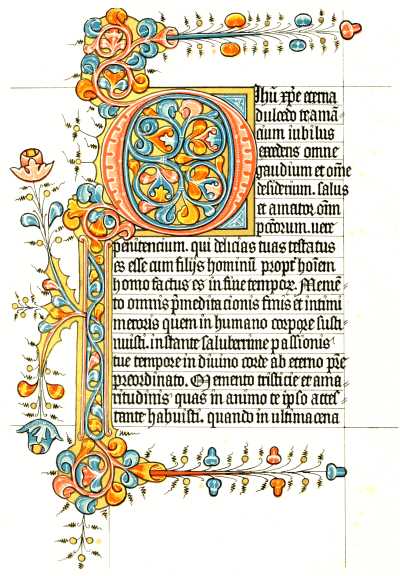 O Jhũ xp̄e eterna
dulcedo te amã
cium iubilus
excedens omne
gaudium et om̄e
desiderium. salus
et amator om̄
pccõrum. uere
penitencium. qui delicias tuas testatus
es esse cum filijs hominũ propt̾ hoĩem
homo factus es in fine tempor. Memẽ
to omnis p̃meditacionis finis et intimi
meroris quem in humano corpore susti
nuisti. instante saluberrime passionis
tue tempore in diuino corde ab eterno p̃re
preordinato. Memento tristicie et ama
ritudinis quas in animo te ipso attes
tante habuisti. quando in ultima cena